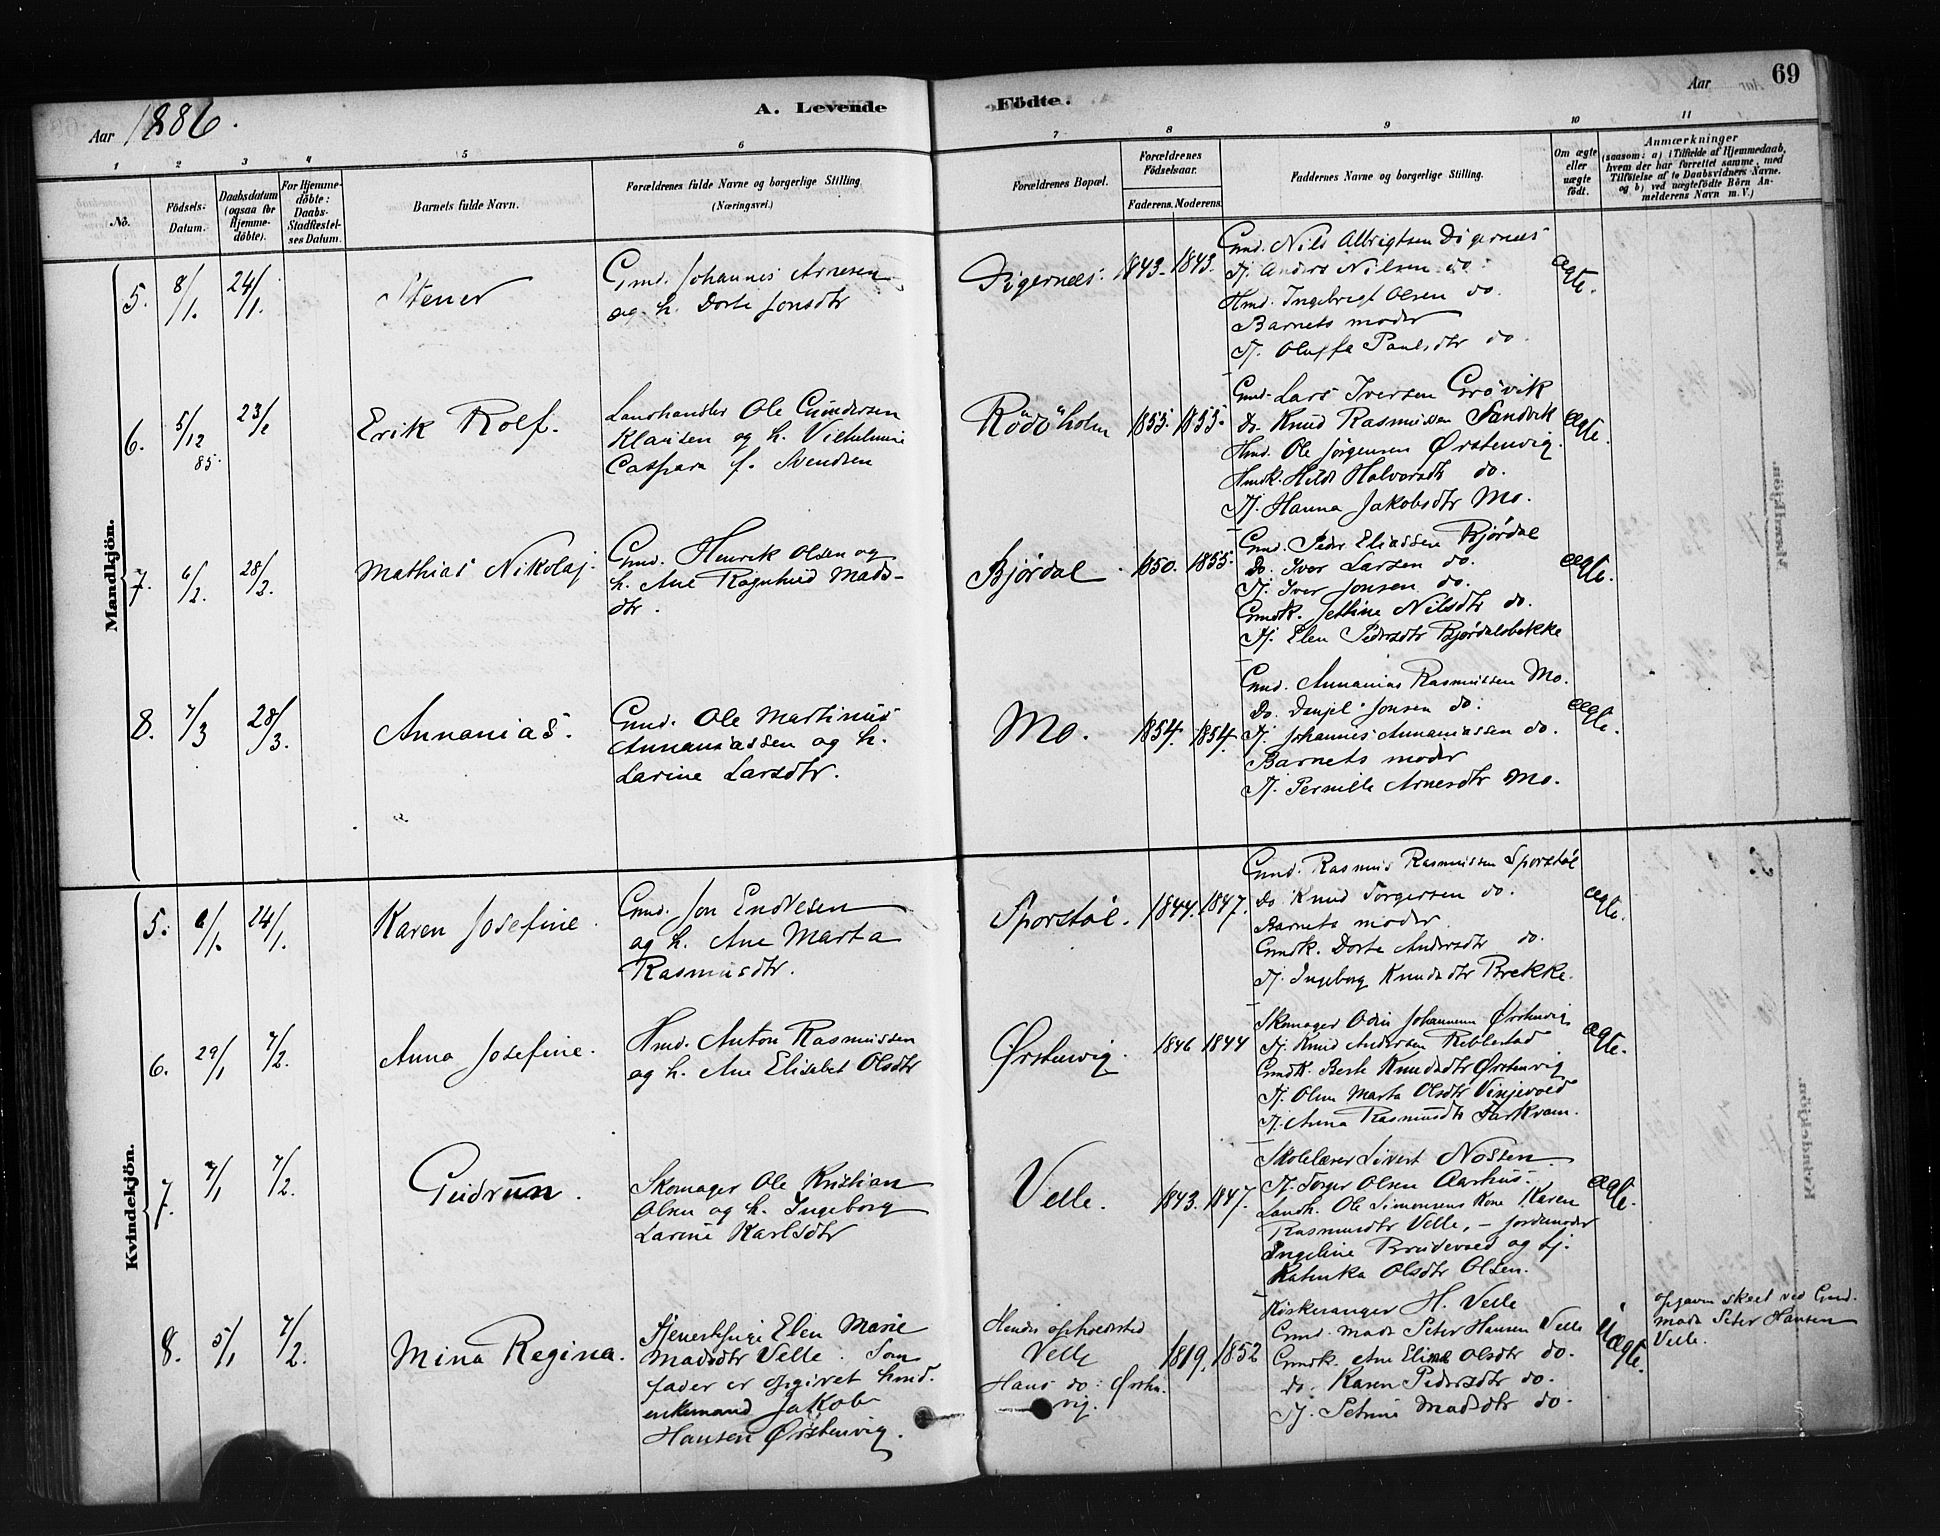 Aar 1886.
A. Levende
Födte.
Aar
69
1 2 3 4 5 6 7 8 9 10 11
No.
Födsels-Datum.
Daabsdatum (ogsaa for Hjemme-döbte).
For Hjemme-döbte: Daabs-Stadfæstel-ses Datum.
Barnets fulde Navn.
Forældrenes fulde Navne og borgerlige Stilling.
(Næringsvei.)
Forældrenes Bopæl.
Forældrenes Födselsaar.
Faderens. Moderens.
Faddernes Navne og borgerlige Stilling.
Om ægte eller uægte födt.
Anmærkninger
(saasom: a) i Tilfælde af Hjemmedaab,
hvem der har forrettet samme, med
Tilföielse af to Daabsvidners Navne.
og b) ved uægtefödte Börn An-
melderens Navn m. V.)
Mandkjön.
5. 8/1. 24/1. Stener
Gmd. Johannes Arnesen
og h. Dorte Jonsdtr
Digernæs. 1843. 1843.
Gmd. Nils Albrigtsen Digernæs
Tj. Anders Nilsen do.
Hmd. Ingebrigt Olsen do.
Barnets moder
Tj. Oluffa Paulsdtr do.
ægte.
6. 5/12 85. 23/1 Erik Rolf.
Landhandler Ole Gundersen
Klausen og h. Vilhelmine
Caspara f. Svendsen
Rödöholm 1855. 1855.
Gmd. Lars Iversen Grøvik
Do. Knud Rasmussen Sandvik
Hmd. Ole Jørgensen Ørstenvig.
Hmdk. Hilda Halvorsdtr do.
Tj. Hanna Jakobsdtr Mo.
ægte.
7. 6/2. 28/2. Mathias Nikolaj.
Gmd. Henrik Olsen og
h. Ane Ragnhild Mads-
dtr.
Bjørdal. 1850. 1855.
Gmd. Peder Eliassen Bjørdal
Do. Iver Larsen do.
Tj. Iver Jonsen do.
Gmdk. Jettine Nilsdtr do.
Tj. Elen Pedersdtr Bjørdalsbakke
ægte.
8. 7/3 28/3. Annanias.
Gmd. Ole Martinus
Annaniassen og h.
Larine Larsdtr.
Mo. 1854. 1854.
Gmd. Annanias Rasmussen Mo.
Do. Danjel Jonsen do.
Tj. Johannes Annaniassen do.
Barnets moder
Tj. Pernille Arnesdtr Mo.
ægte.
Kvindekjön.
5. 6/1. 24/1. Karen Josefine.
Gmd. Jon Endresen
og h. Ane Marta
Rasmusdtr.
Sporstøl. 1844. 1847.
Gmd. Rasmus Rasmussen Sporstøl
do Knud Torgersen do.
Barnets moder
Gmdk. Dorte Andersdtr do.
Tj. Ingeborg Knudsdtr Brekke.
ægte.
6. 29/1 7/2. Anna Josefine.
Hmd. Anton Rasmussen
og h. Ane Elisabet Olsdtr
Ørstenvig. 1846 1844
Skomager Odin Johannesen Ørstenvig
Tj. Knud Andersen Riblestad
Gmdk. Berte Knudsdtr Ørstenvig
Tj. Oline Marta Olsdtr Vinjevold
Tj. Anna Rasmusdtr
ægte.
7. 7/1 7/2. Gudrun.
Skomager Ole Kristian
Olsen og h. Ingeborg
Larine Karlsdtr
Velle. 1843. 1847.
Skolelærer Sivert Nossen
Tj. Torger Olsen Aarhus.
Landh. Ole Simonsens Kone Karen
Rasmusdtr Velle, – Jordemoder
Ingeline Brudevold og tj.
Katinka Olsdtr Olsen.
ægte.
8. 5/1 7/2. Mina Regina.
Tjenestepige Elen Marie
Madsdtr Velle. Som
fader er opgivet hmd.
enkemand Jakob
Hansen Ørstenvig.
Hendes opholdssted
Velle
Hans do: Ørsten-
vig.
1819. 1852
Kirkesanger H. Velle
Gmd. Mads Peter Hansen Velle
Gmdk. Ane Eline Olsdtr do.
do. Karen Pedersdtr do.
Tj. Petrine Madsdtr do.
Uægte.
opgaven skeet ved Gmd.
Mads Peter Hansen
Velle.